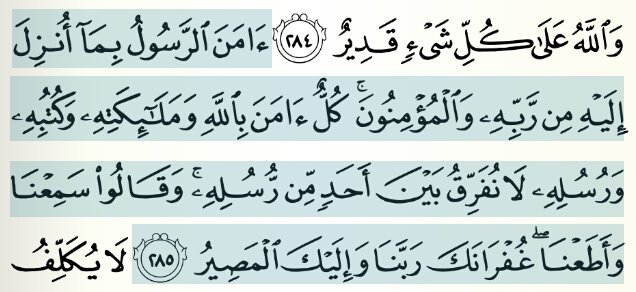 وَٱللَّهُ عَلَىٰ كُلِّ شَىْءٍ قَدِيرٌ ٢٨٤ ءَامَنَ ٱلرَّسُولُ بِمَآ أُنزِلَ
إِلَيْهِ مِن رَّبِّهِۦ وَٱلْمُؤْمِنُونَ ۚ كُلٌّ ءَامَنَ بِٱللَّهِ وَمَلَـٰٓئِكَتِهِۦ وَكُتُبِهِۦ
وَرُسُلِهِۦ لَا نُفَرِّقُ بَيْنَ أَحَدٍ مِّن رُّسُلِهِۦ ۚ وَقَالُوا۟ سَمِعْنَا
وَأَطَعْنَا ۖ غُفْرَانَكَ رَبَّنَا وَإِلَيْكَ ٱلْمَصِيرُ ٢٨٥ لَا يُكَلِّفُ